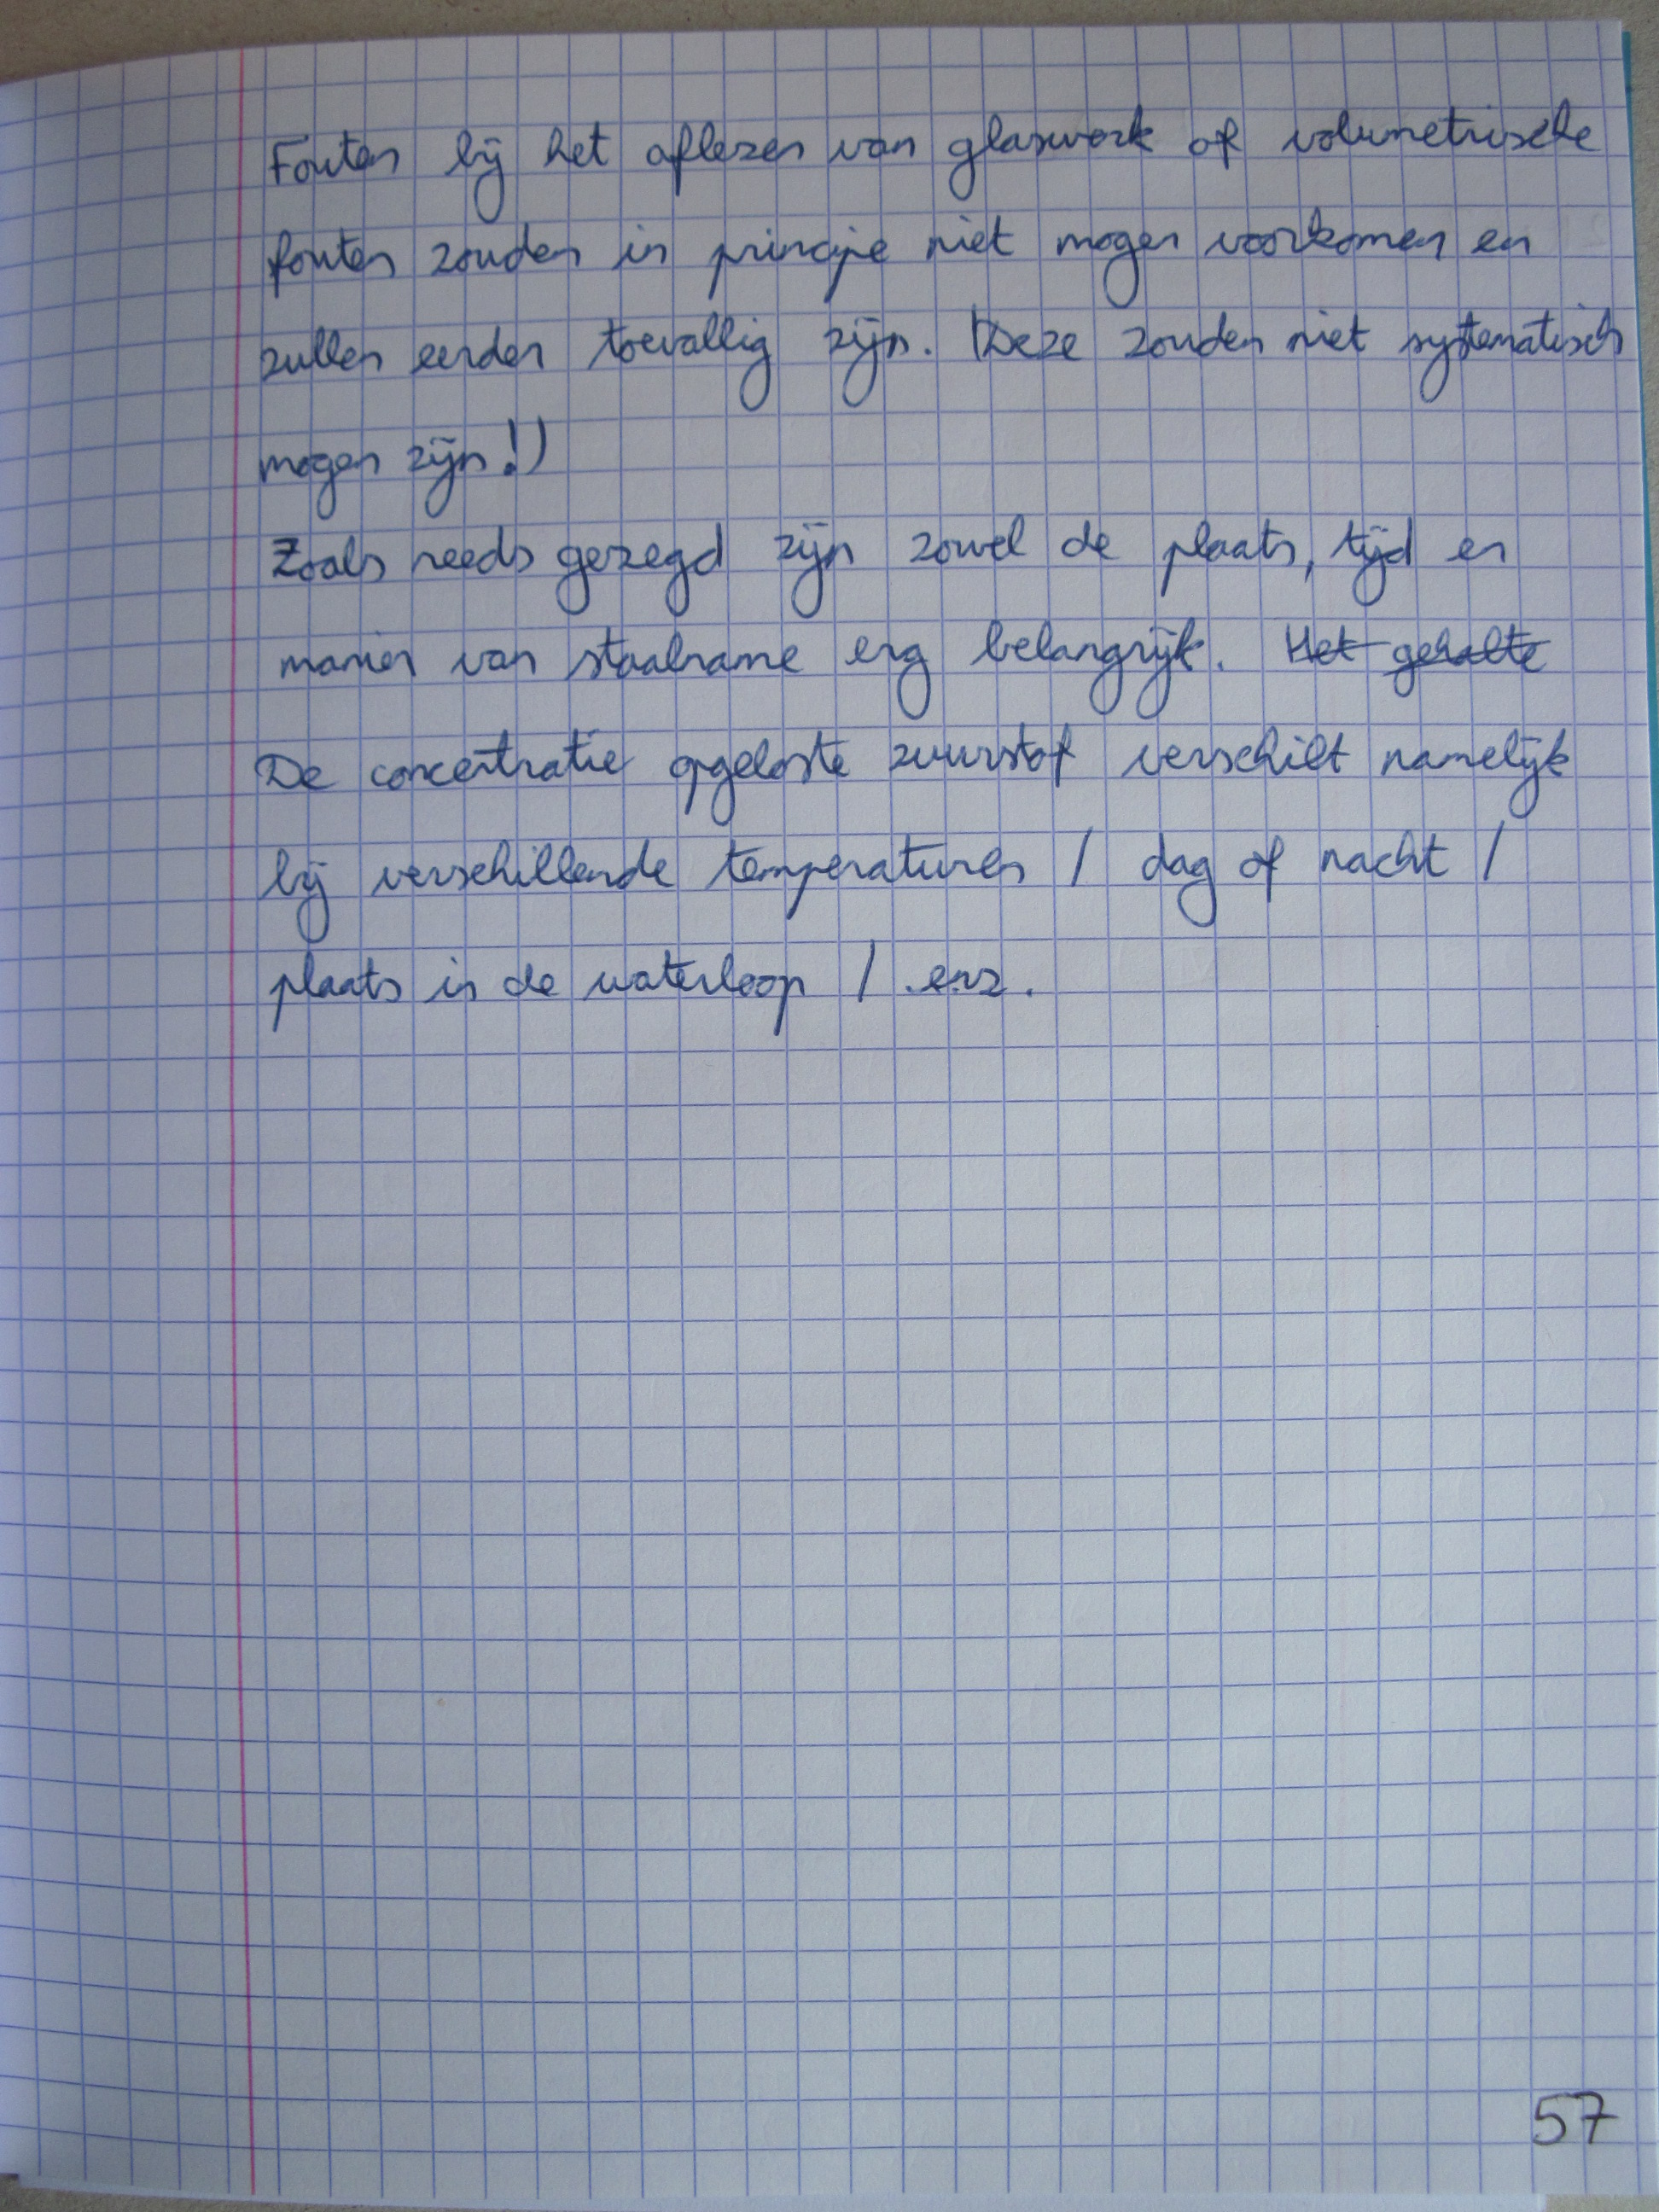 Fouten bij het aflezen van glaswerk of volumetrische
fouten zouden in principe niet mogen voorkomen en
zullen eerder toevallig zijn. (Deze zouden niet systematisch
mogen zijn!)
Zoals reeds gezegd zijn zowel de plaats, tijd en
manier van staalname erg belangrijk. Het gehalte
De concentratie opgeloste zuurstof verschilt namelijk
bij verschillende temperaturen / dag of nacht /
plaats in de waterloop / enz.
57